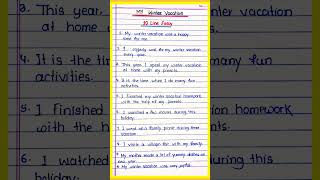 My Winter Vacation
10 Line Essay
1. My winter vacation was a happy
time for me.
2. I eagerly wait for my winter vacation
every year.
3. This year, I spent my winter vacation
at home with my parents.
4. It is the time when I do many fun
activities.
5. I finished my winter vacation homework
with the help of my parents.
6. I watched a few movies during this
holiday.
7. I went on a family picnic during this
vacation.
8. I visit a village fair with my family.
9. My mother made a lot of yummy dishes on
new year.
10. My winter vacation was very joyful.
3. This year,
at home
4. It is the
activities.
5. I finished
with the
6. I watched
holiday.
vacation
fun
homework
during this